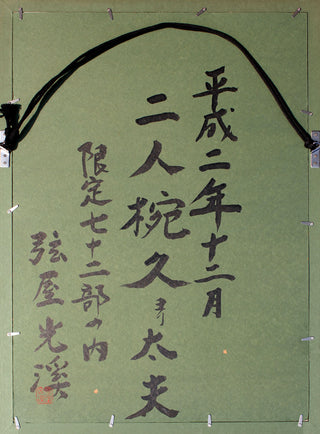 平成二年十二月
二人椀久 ヨリ 太夫
限定七十二部の内
弦屋光溪